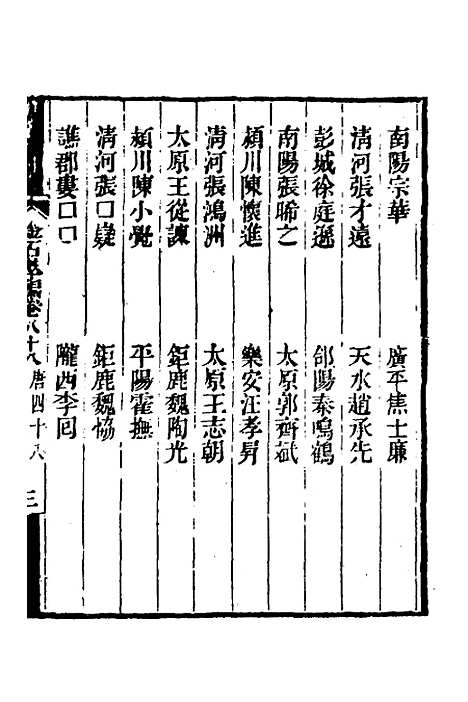 南陽宗華　廣平焦士廉
清河張才遠　天水趙承先
彭城徐庭遜　郃陽秦鳴鶴
南陽張晞之　太原郭齊斌
潁川陳懷進　樂安汪孝昇
清河張鴻洲　太原王志朝
太原王從諫　鉅鹿魏陶光
潁川陳小覺　平陽霍撫
清河張口嶷　鉅鹿魏恊
譙郡婁口口　隴西李囘
金石萃編卷八十八　唐四十八　三